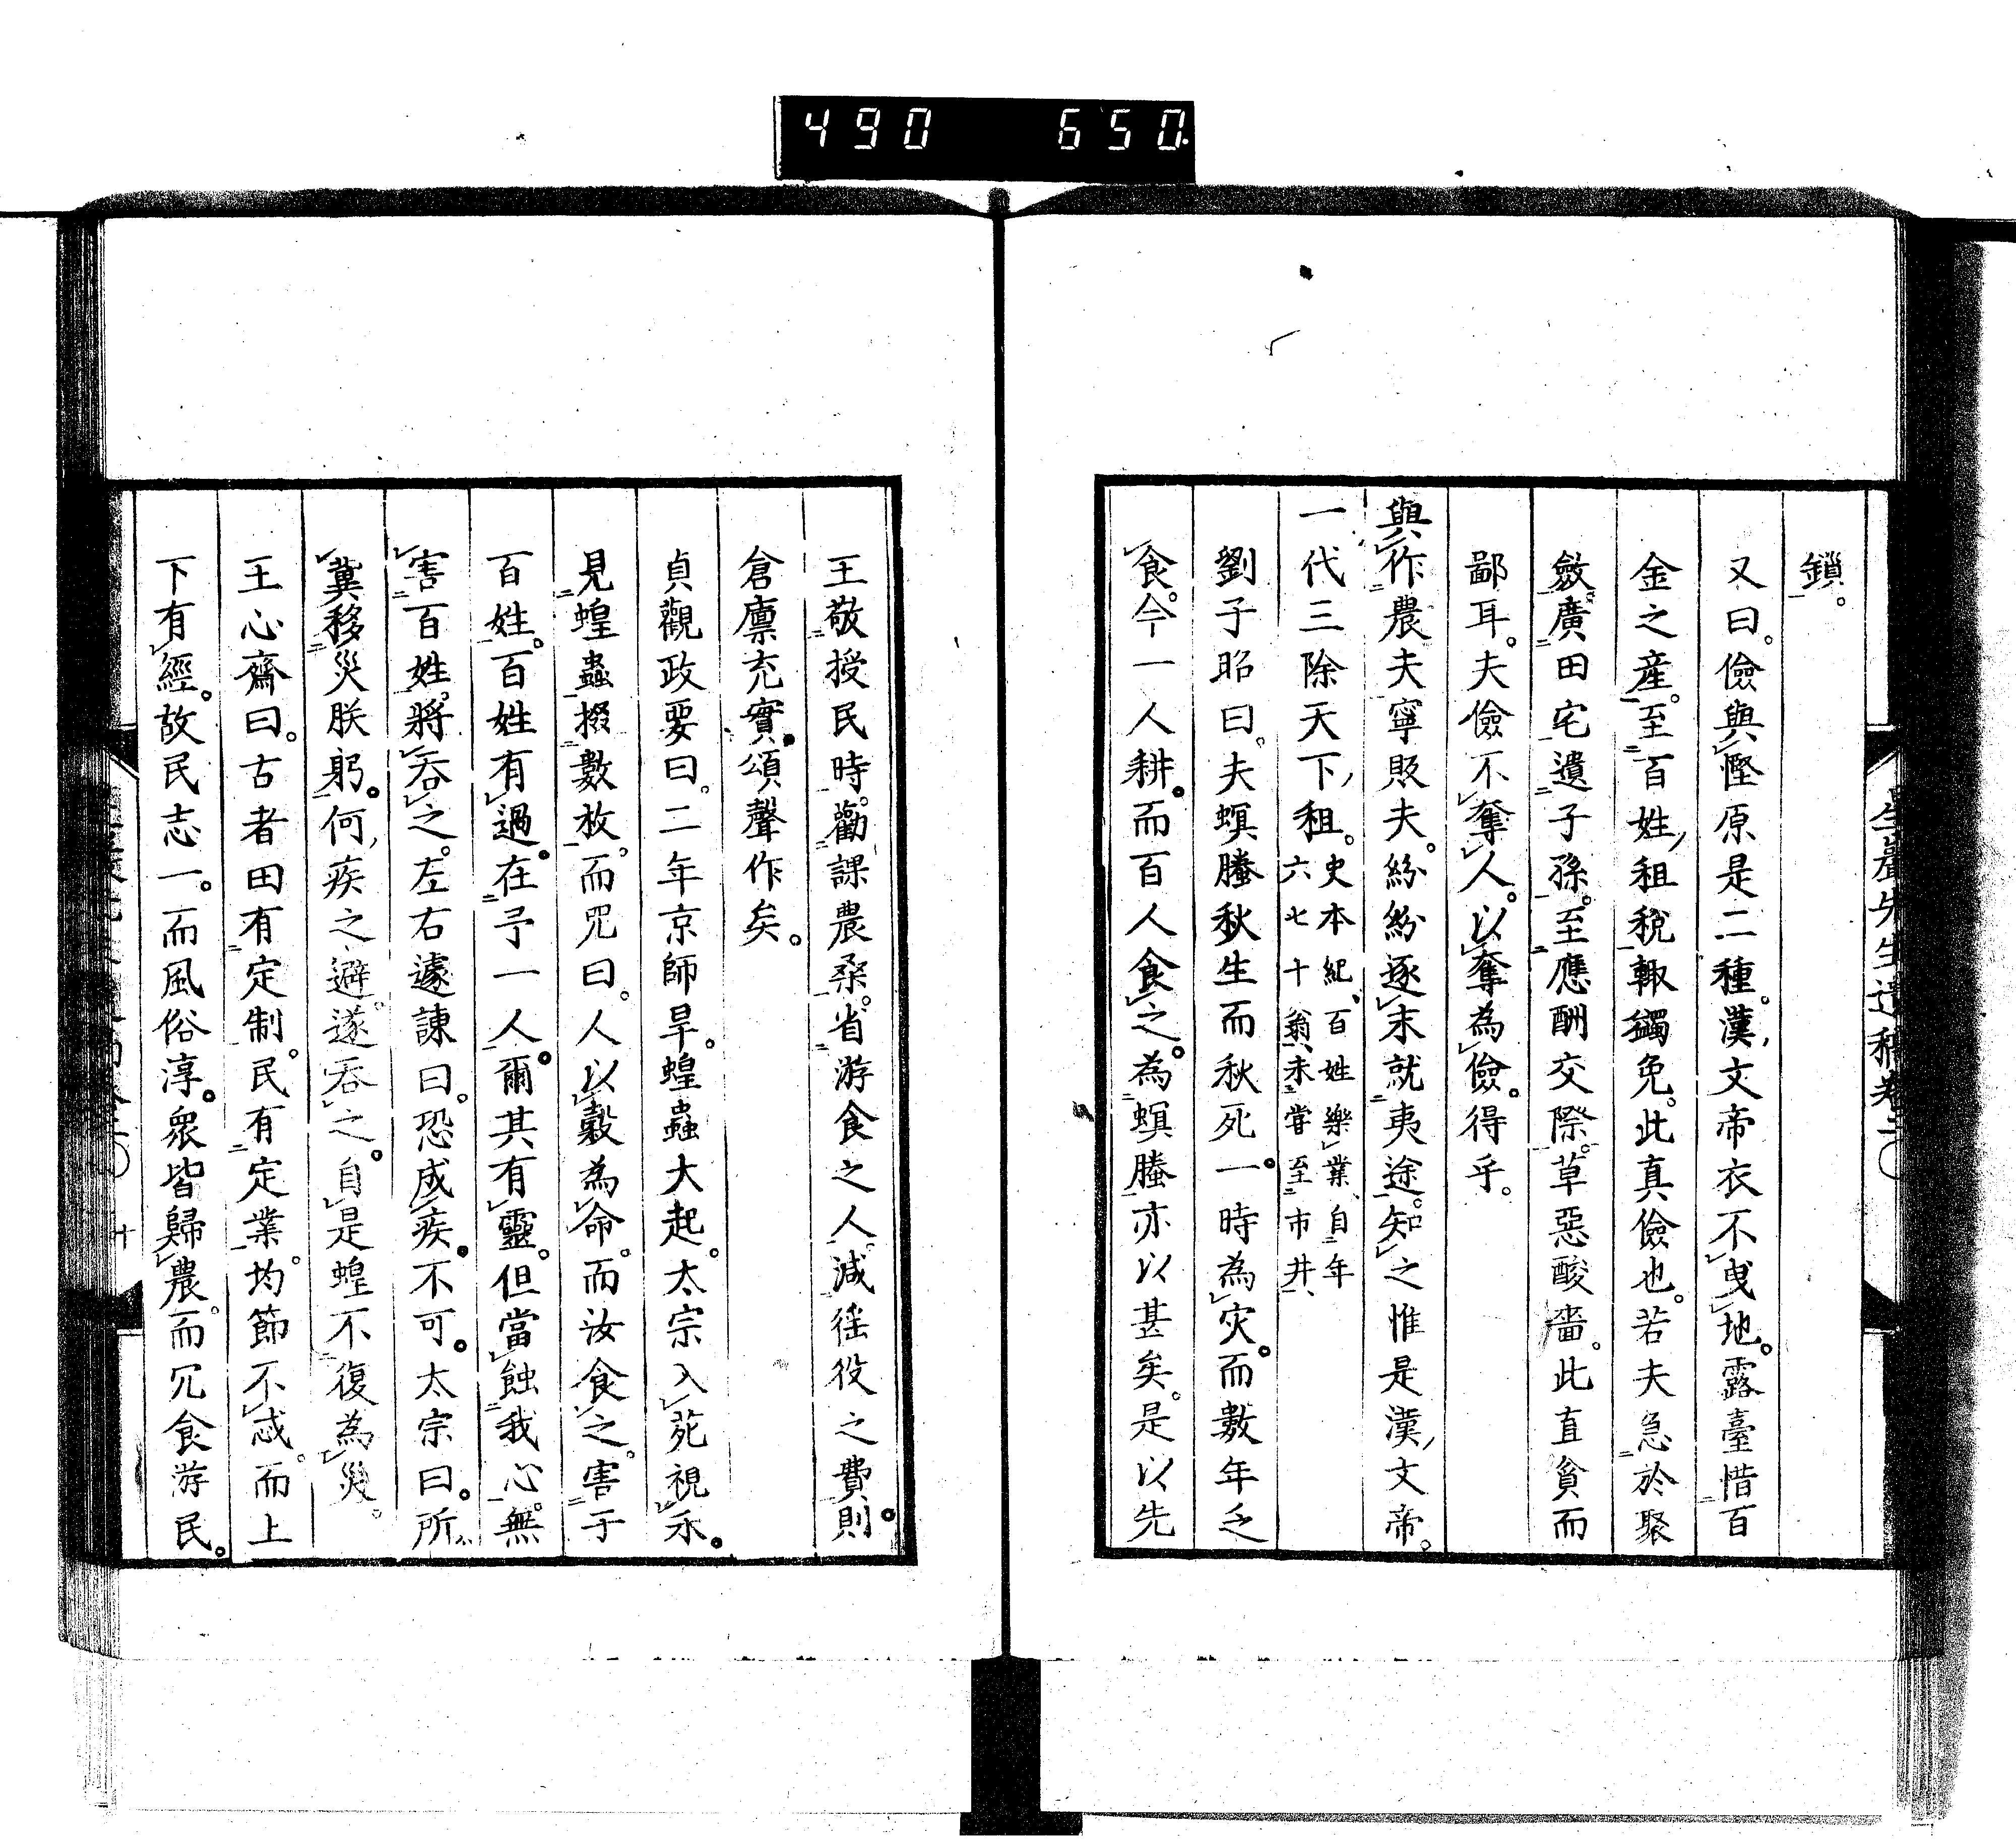 490 650
鎖。
又曰。儉與慳原是二種。漢文帝衣不曳地。露臺惜百
金之產。至百姓租税輙蠲免。此真儉也。若夫急於聚
斂。廣田宅遺子孫。至應酬交際。草惡酸嗇。此直貧而
鄙耳。夫儉不奪人。以奪為儉。得乎。
與作農夫寧販夫。紛紛逐末就夷途。知之惟是漢文帝。
一代三除天下租。史本紀、百姓樂業、自年
六七十翁、未嘗至市井、
劉子昭曰。夫螟螣秋生而秋死。一時為灾。而數年乏
食。今一人耕。而百人食之。為螟螣亦以甚矣。是以先
王敬授民時。勸課農桑。省游食之人。減徭役之費。則
倉廪充實。頌聲作矣。
貞觀政要曰。二年京師旱。蝗蟲大起。太宗入苑視禾。
見蝗蟲掇數枚。而咒曰。人以穀為命。而汝食之。害于
百姓。百姓有過。在予一人。爾其有靈。但當蝕我心。無
害百姓。將吞之。左右遽諫曰。恐成疾。不可。太宗曰。所
冀移災朕躬。何疾之避。遂吞之。自是蝗不復為災。
王心齋曰。古者田有定制。民有定業。均節不忒。而上
下有經。故民志一。而風俗淳。衆皆歸農。而冗食游民。